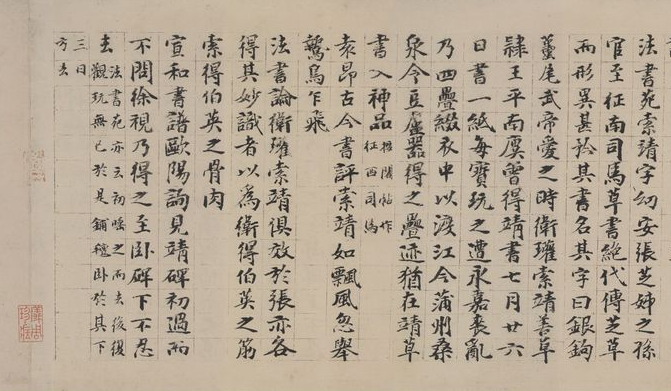 法書苑索靖字幼安張芝姊之孫
官至征南司馬草書絶代傳芝草
而形異甚矜其書名其字曰銀鉤
蠆尾武帝愛之時衛瓘索靖善草
隷王平南廙曾得靖書七月廿六
日書一紙每寶玩之遭永嘉喪亂
乃四疊綴衣中以渡江今蒲州桑
泉令豆盧器得之疊迹猶在靖草
書入神品
征西司馬
袁昂古今書評索靖如飄風忽舉
鷙鳥乍飛
法書論衛瓘索靖俱效於張亦各
得其妙識者以爲衛得伯英之筋
索得伯英之骨肉
宣和書譜歐陽詢見靖碑初過而
不問徐視乃得之至卧碑下不忍
去
法書苑亦云初唾之而去後復
觀玩無已於是鋪氊卧於其下
三日
方去